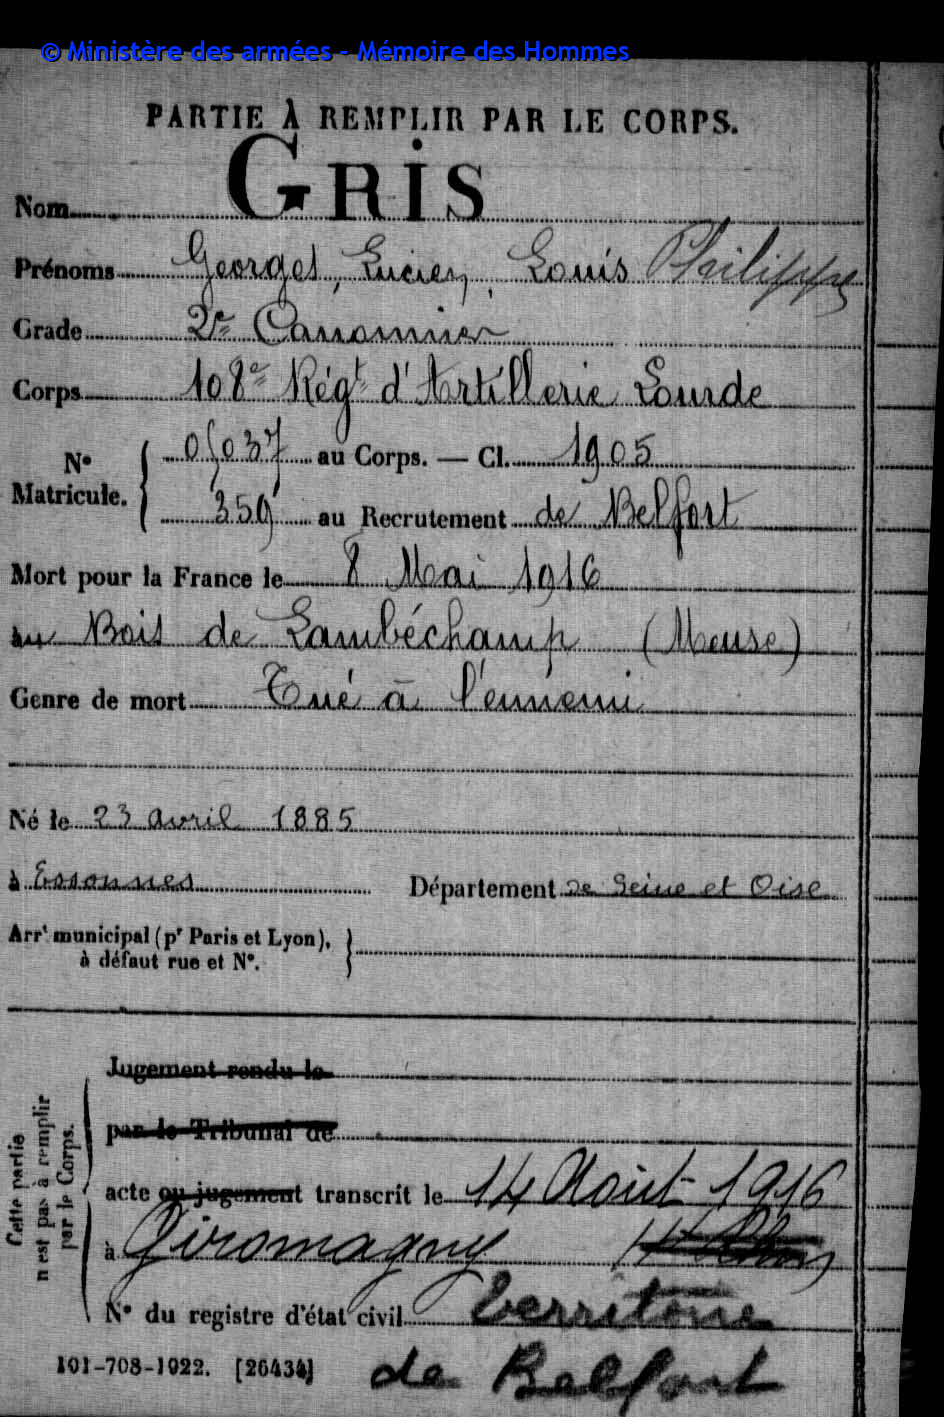 © Ministère des armées - Mémoire des Hommes
PARTIE À REMPLIR PAR LE CORPS.
Nom GRIS
Prénoms Georges, Lucien, Louis Philippe
Grade 2e Canonnier
Corps 108e Régt d'Artillerie Lourde
No Matricule. 05037 au Corps. — Cl. 1905
359 au Recrutement de Belfort
Mort pour la France le 8 Mai 1916
au Bois de Lambéchamp (Meuse)
Genre de mort Tué à l'ennemi
Né le 23 avril 1885
à Essonnes Département de Seine et Oise
Arrt municipal (pr Paris et Lyon),
à défaut rue et No.
Cette partie
n'est pas à remplir
par le Corps.
Jugement rendu le
par le Tribunal de
acte ou jugement transcrit le 14 Août 1916
à Giromagny
No du registre d'état civil Territoire
de Belfort
101-708-1922. [26434]